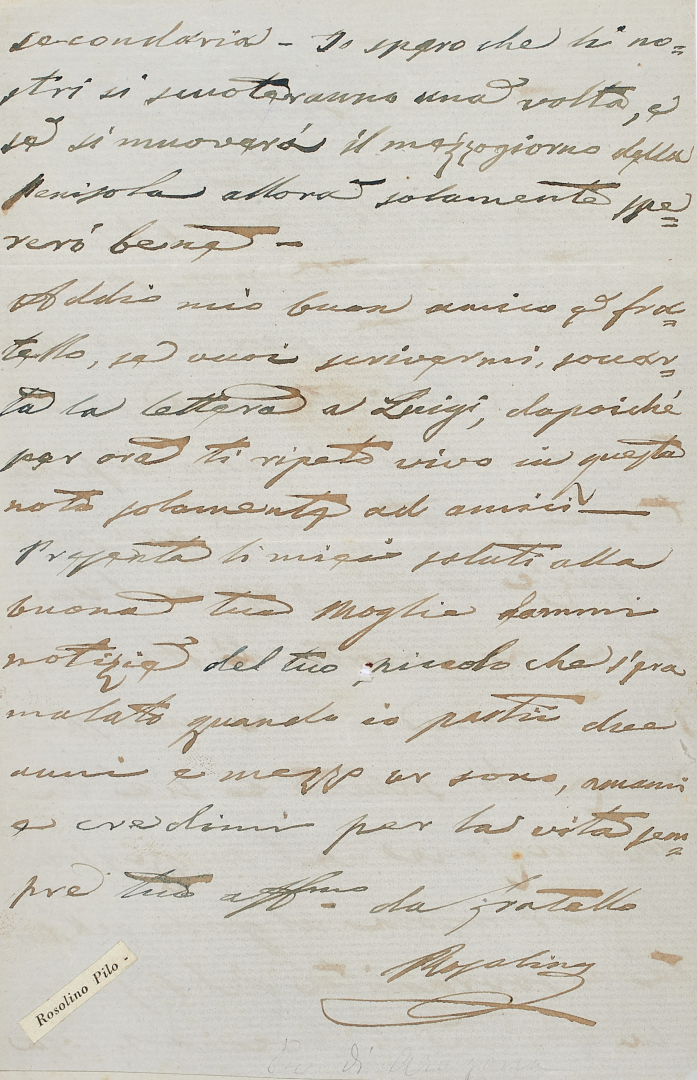 secondaria - Io spero che li no=
stri si scuoteranno una volta, e
se si muoverà il mezzogiorno della
penisola allora solamente spe=
rerò bene -
Addio mio buon amico e fra=
tello, se vuoi scrivermi,
ta la lettera a Luigi, dapoiché
per ora ti ripeto vivo in questa
nota solamente ad amici —
Presenta li miei saluti alla
buona tua Moglie dammi
notizie del tuo piccolo che s'era
malato quando io partii due
anni e mezzo or sono, amami
e credimi per la vita sem=
pre tuo affmo da fratello
Rosolino
Rosolino Pilo -